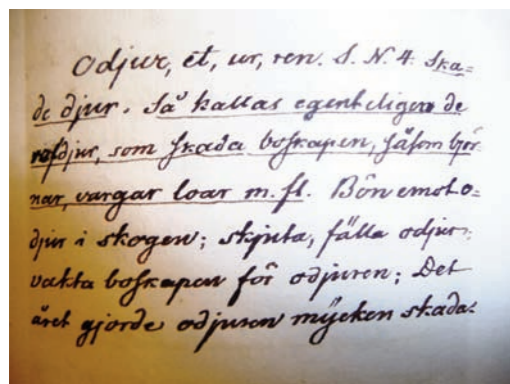 Odjur, et, ur, ren. S. N. 4. Ska=
de djur. Så kallas egenteligen de
rofdjur, som skada boskapen, såsom björ
nar, vargar loar m. fl. Bön emot o=
djur i skogen; skjuta, fälla odjur;
vakta boskapen för odjuren; Det
året gjorde odjuren mÿcken skada.